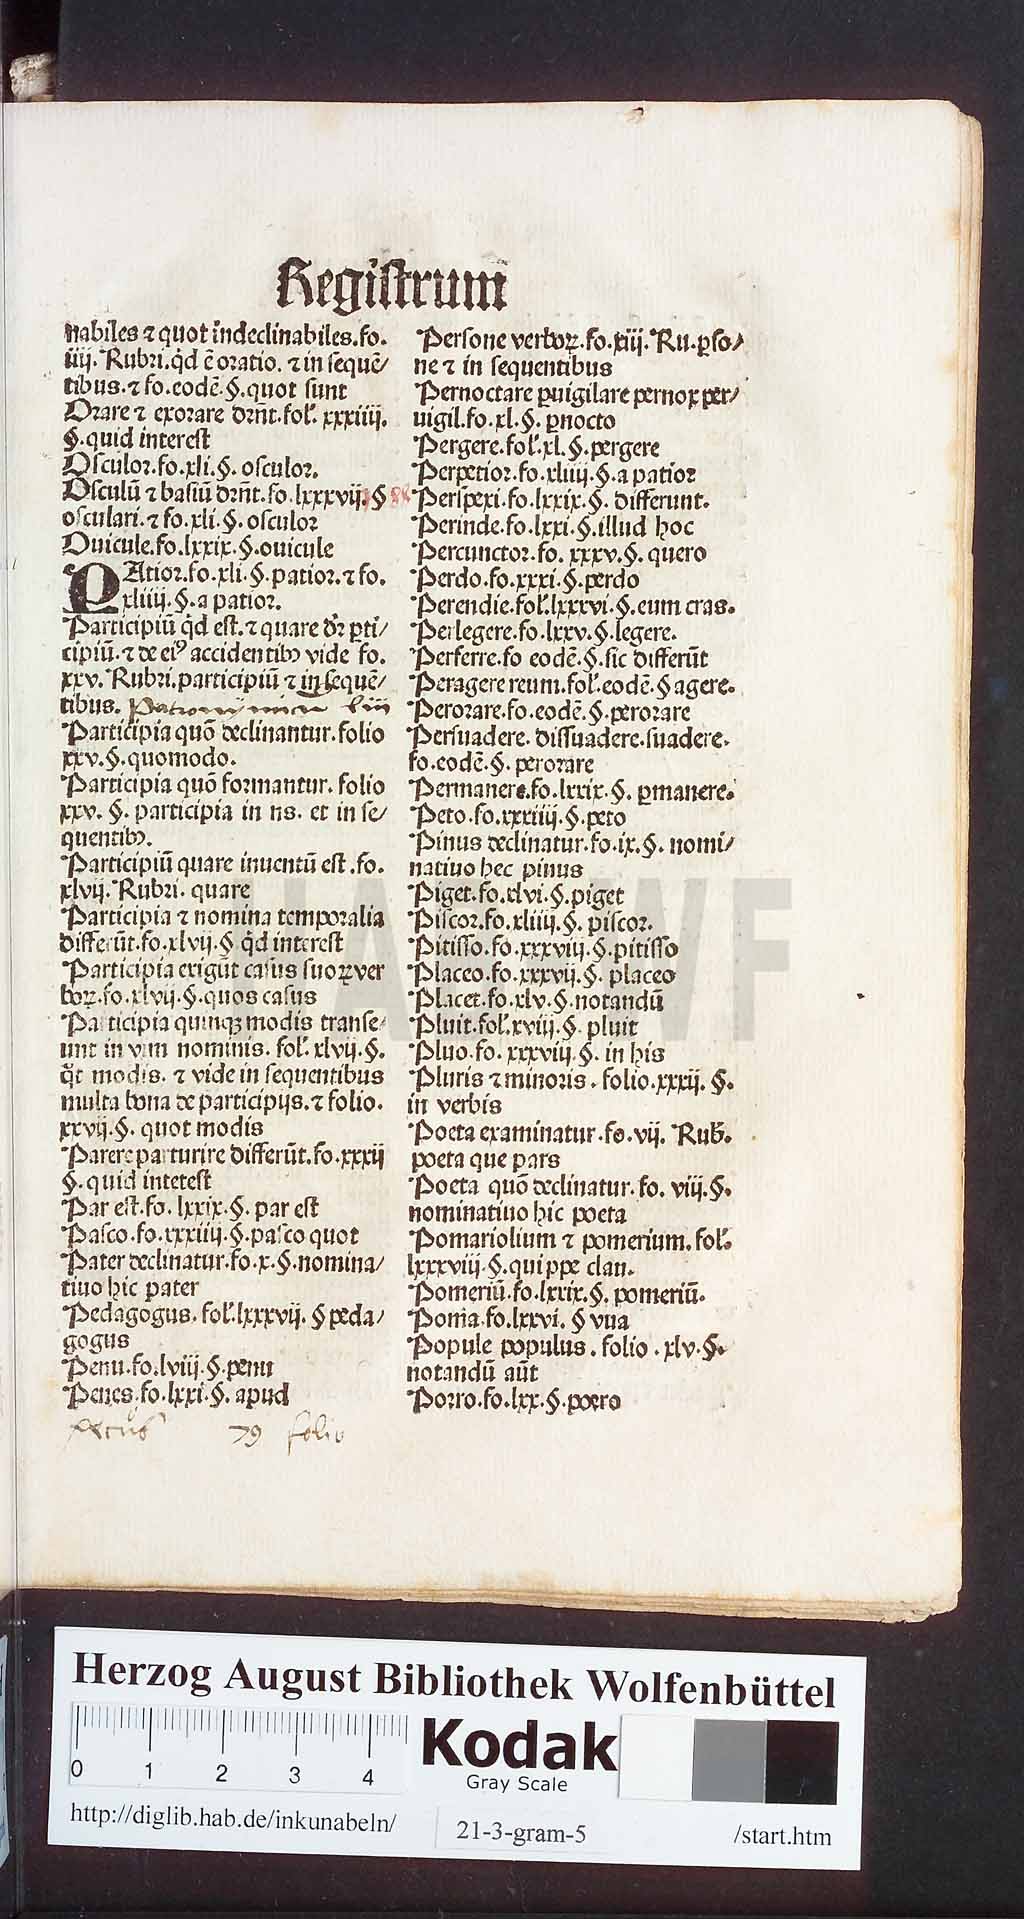 Registrum
nabiles ⁊ quot indeclinabiles.fo.
iiij. Rubri.qd̄ ē oratio. ⁊ in sequē/
tibus.⁊ fo.eodē.§.quot sunt
Orare ⁊ exorare drn̄t.fol. xxxiiij.
§.quid interest
Osculor.fo.xli.§. osculor.
Osculū ⁊ basiū drn̄t.fo.lxxxvij.§
osculari.⁊ fo.xli.§.osculor
Ouicule.fo.lxxix.§.ouicule
PAtior.fo.xli.§.patior.⁊ fo.
xliiij.§.a patior.
Participiū qd̄ est.⁊ quare dr̄ ꝑti/
cipiū.⁊ de eiꝰ accidentibꝫ vide fo.
xxv. Rubri.participiū ⁊ in sequē/
tibus. Patronymica liii
Participia quō declinantur.folio
xxv.§.quomodo.
Participia quō formantur. folio
xxv. §. participia in ns. et in se/
quentibꝫ.
Participiū quare inuentū est.fo.
xlvij. Rubri. quare
Participia ⁊ nomina temporalia
differūt.fo.xlvij.§ qd̄ interest
Participia exigūt casus suoꝝ ver
boꝝ.fo.xlvij.§.quos casus
Participia quinqꝫ modis transe/
unt in vim nominis. fol. xlvij.§.
qt̄ modis. ⁊ vide in sequentibus
multa bona de participijs.⁊ folio.
xxvij.§. quot modis
Parere parturire differūt.fo.xxxij
§.quid intetest
Par est.fo. lxxix.§. par est
Pasco.fo.xxxiiij.§.pasco quot
Pater declinatur.fo.x.§.nomina/
tiuo hic pater
Pedagogus. fol.lxxxvij. § peda/
gogus
Penu.fo.lviij.§.penu
Penes.fo.lxxi.§. apud
79 folio
Persone verboꝝ.fo.xiij. Ru.ꝑso/
ne ⁊ in sequentibus
Pernoctare ꝑuigilare pernox per/
uigil.fo.xl.§. ꝑnocto
Pergere.fol.xl.§.pergere
Perpetior.fo.xliiij.§.a patior
Perspexi.fo.lxxix.§. differunt.
Perinde.fo.lxxi.§.illud hoc
Percunctor.fo. xxxv.§. quero
Perdo.fo.xxxi.§.perdo
Perendie.fol.lxxxvi.§.eum cras.
Perlegere.fo.lxxv.§.legere.
Perferre.fo eodē.§.sic differūt
Peragere reum.fol.eodē.§ agere.
Perorare.fo.eodē.§.perorare
Persuadere. dissuadere.suadere.
fo.eodē.§. perorare
Permanere.fo.lxxix.§. ꝑmanere.
Peto.fo.xxxiiij.§.peto
Pinus declinatur.fo.ix.§. nomi/
natiuo hec pinus
Piget.fo.xlvi.§.piget
Piscor.fo.xliiij.§. piscor.
Pitisso.fo.xxxviij.§.pitisso
Placeo.fo.xxxvij.§. placeo
Placet.fo.xlv.§.notandū
Pluit.fol.xviij.§. pluit
Pluo.fo. xxxviij.§. in his
Pluris ⁊ minoris. folio.xxxij. §.
in verbis
Poeta examinatur.fo.vij. Rub.
poeta que pars
Poeta quō declinatur.fo. viij.§.
nominatiuo hic poeta
Pomariolium ⁊ pomerium. fol.
lxxxviij.§.quippe clau.
Pomeriū.fo.lxxix.§. pomeriū.
Poma.fo.lxxvi.§ vua
Popule populus. folio. xlv.§.
notandū aūt
Porro.fo.lxx.§.porro
HAB WF
Herzog August Bibliothek Wolfenbüttel
0 1 2 3 4
Kodak
Gray Scale
http://diglib.hab.de/inkunabeln/
21-3-gram-5
/start.htm